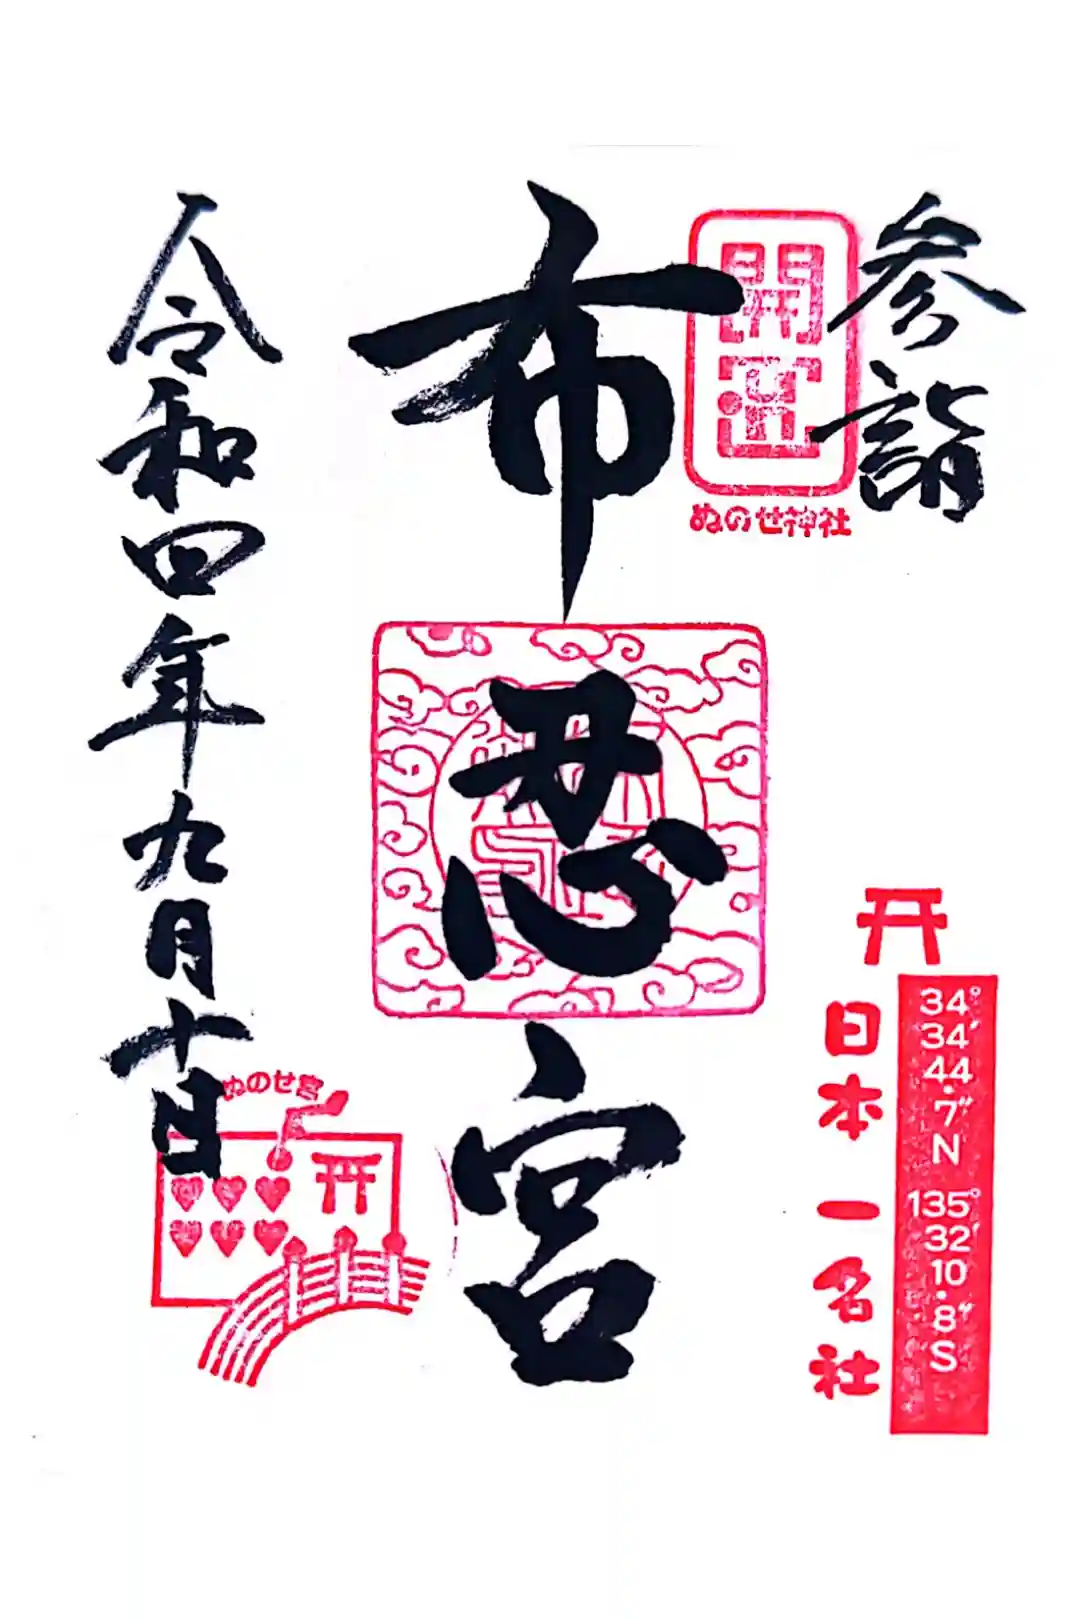 参詣
開運
ぬのせ神社
34°
34′
44
.7″
N
135°
32′
10
.8″
S
日本一名社
布忍宮
令和四年九月十日
ぬのせ宮